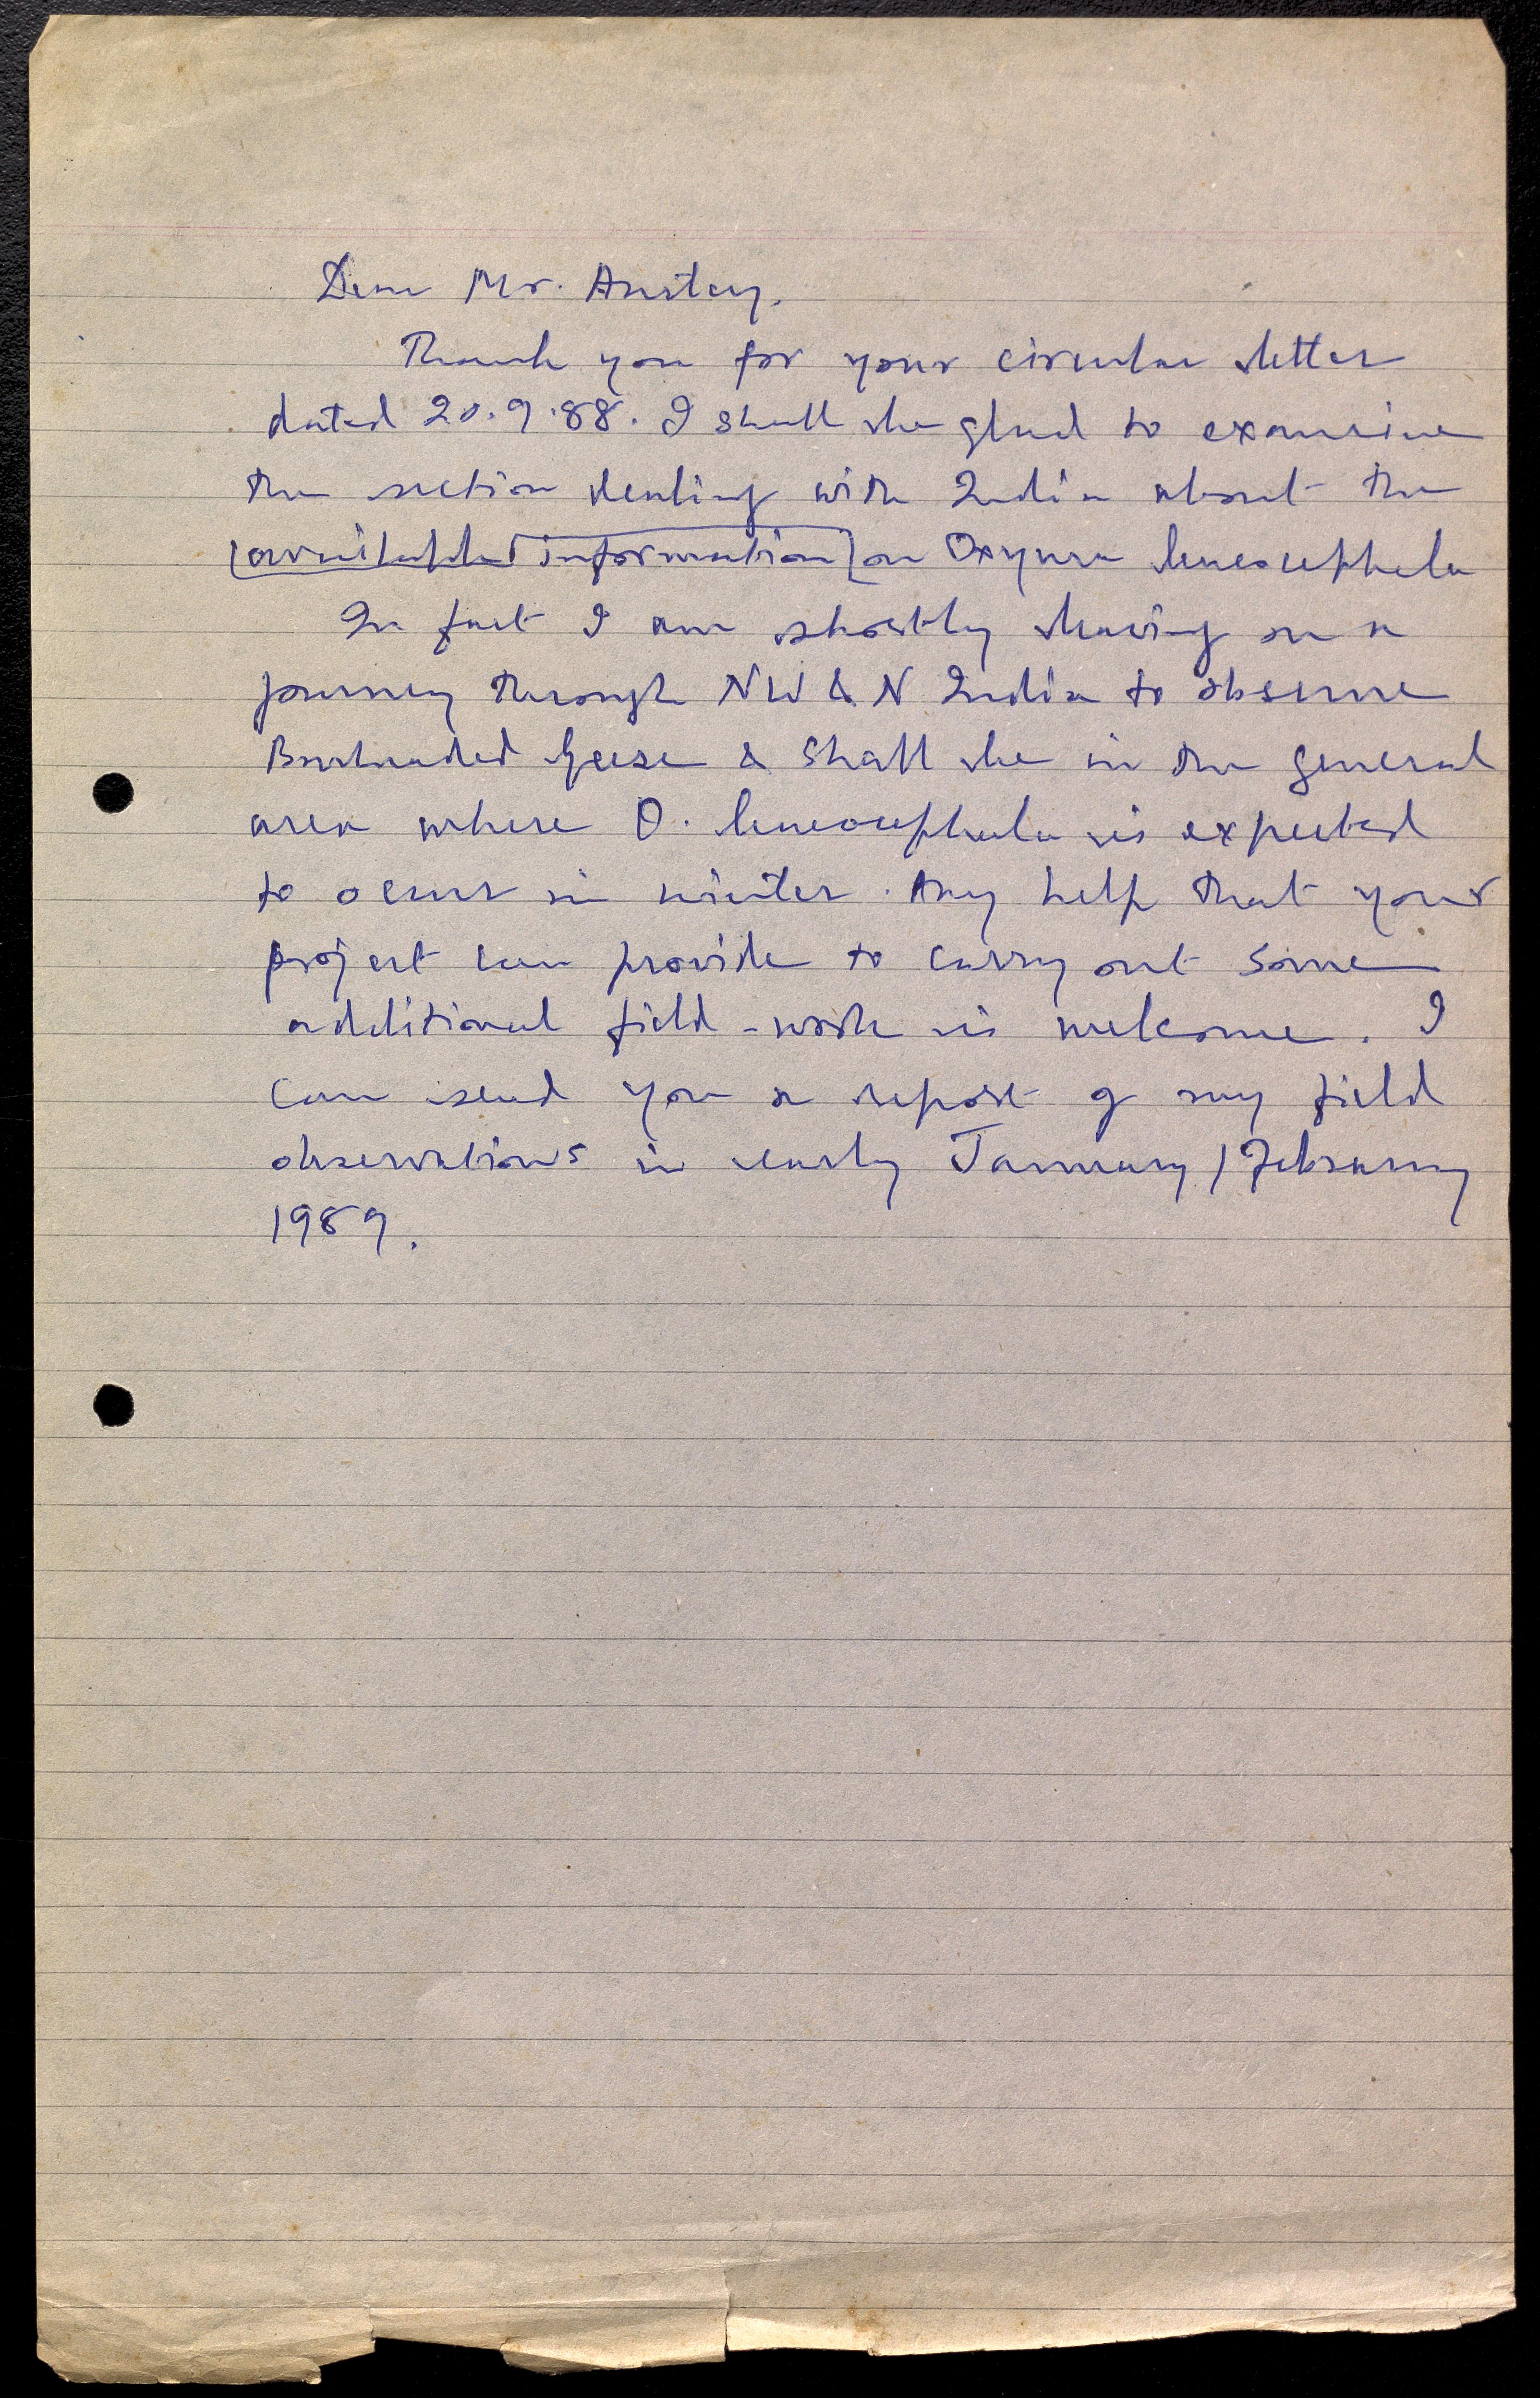 Dear Mr. Anstey,
Thank you for your circular letter
dated 20.9.88. I shall be glad to examine
the section dealing with India about the
available information on Oxyura leucocephala
In fact I am shortly leaving on a
journey through NW & N India to observe
Barheaded Geese & shall be in the general
area where O. leucocephala is expected
to occur in winter. Any help that your
project can provide to carry out some
additional field-work is welcome. I
can send you a report of my field
observations in early January/February
1989.